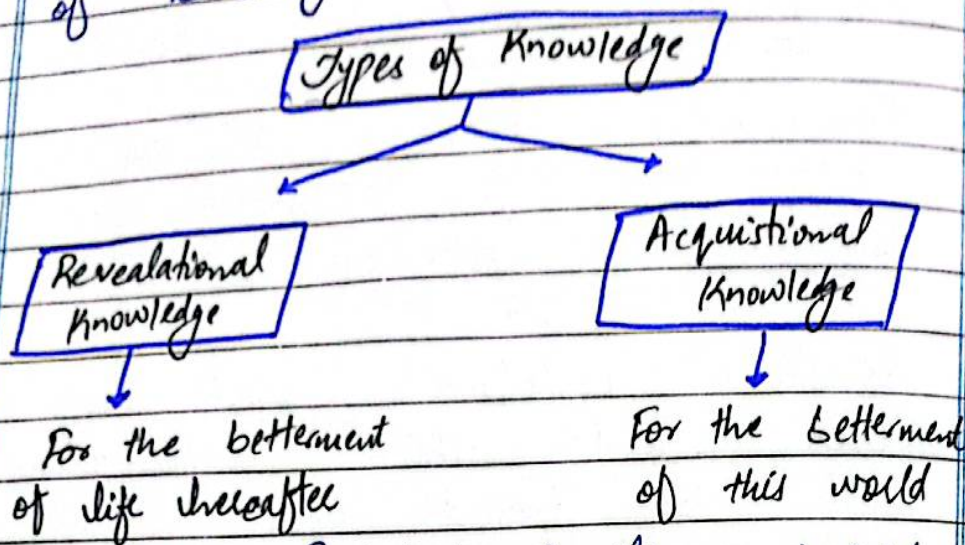 of
Types of Knowledge
Revealational
Knowledge
Acquistional
Knowledge
For the betterment
of life hereafter
For the betterment
of this world